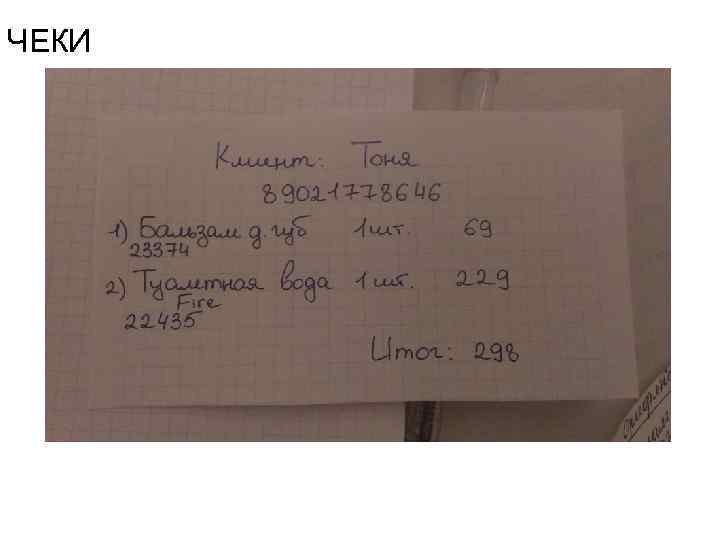 ЧЕКИ
Клиент: Тоня
89021778646
1) Бальзам д. губ 1 шт. 69
23374
2) Туалетная вода 1 шт. 229
Fire
22435
Итог: 298